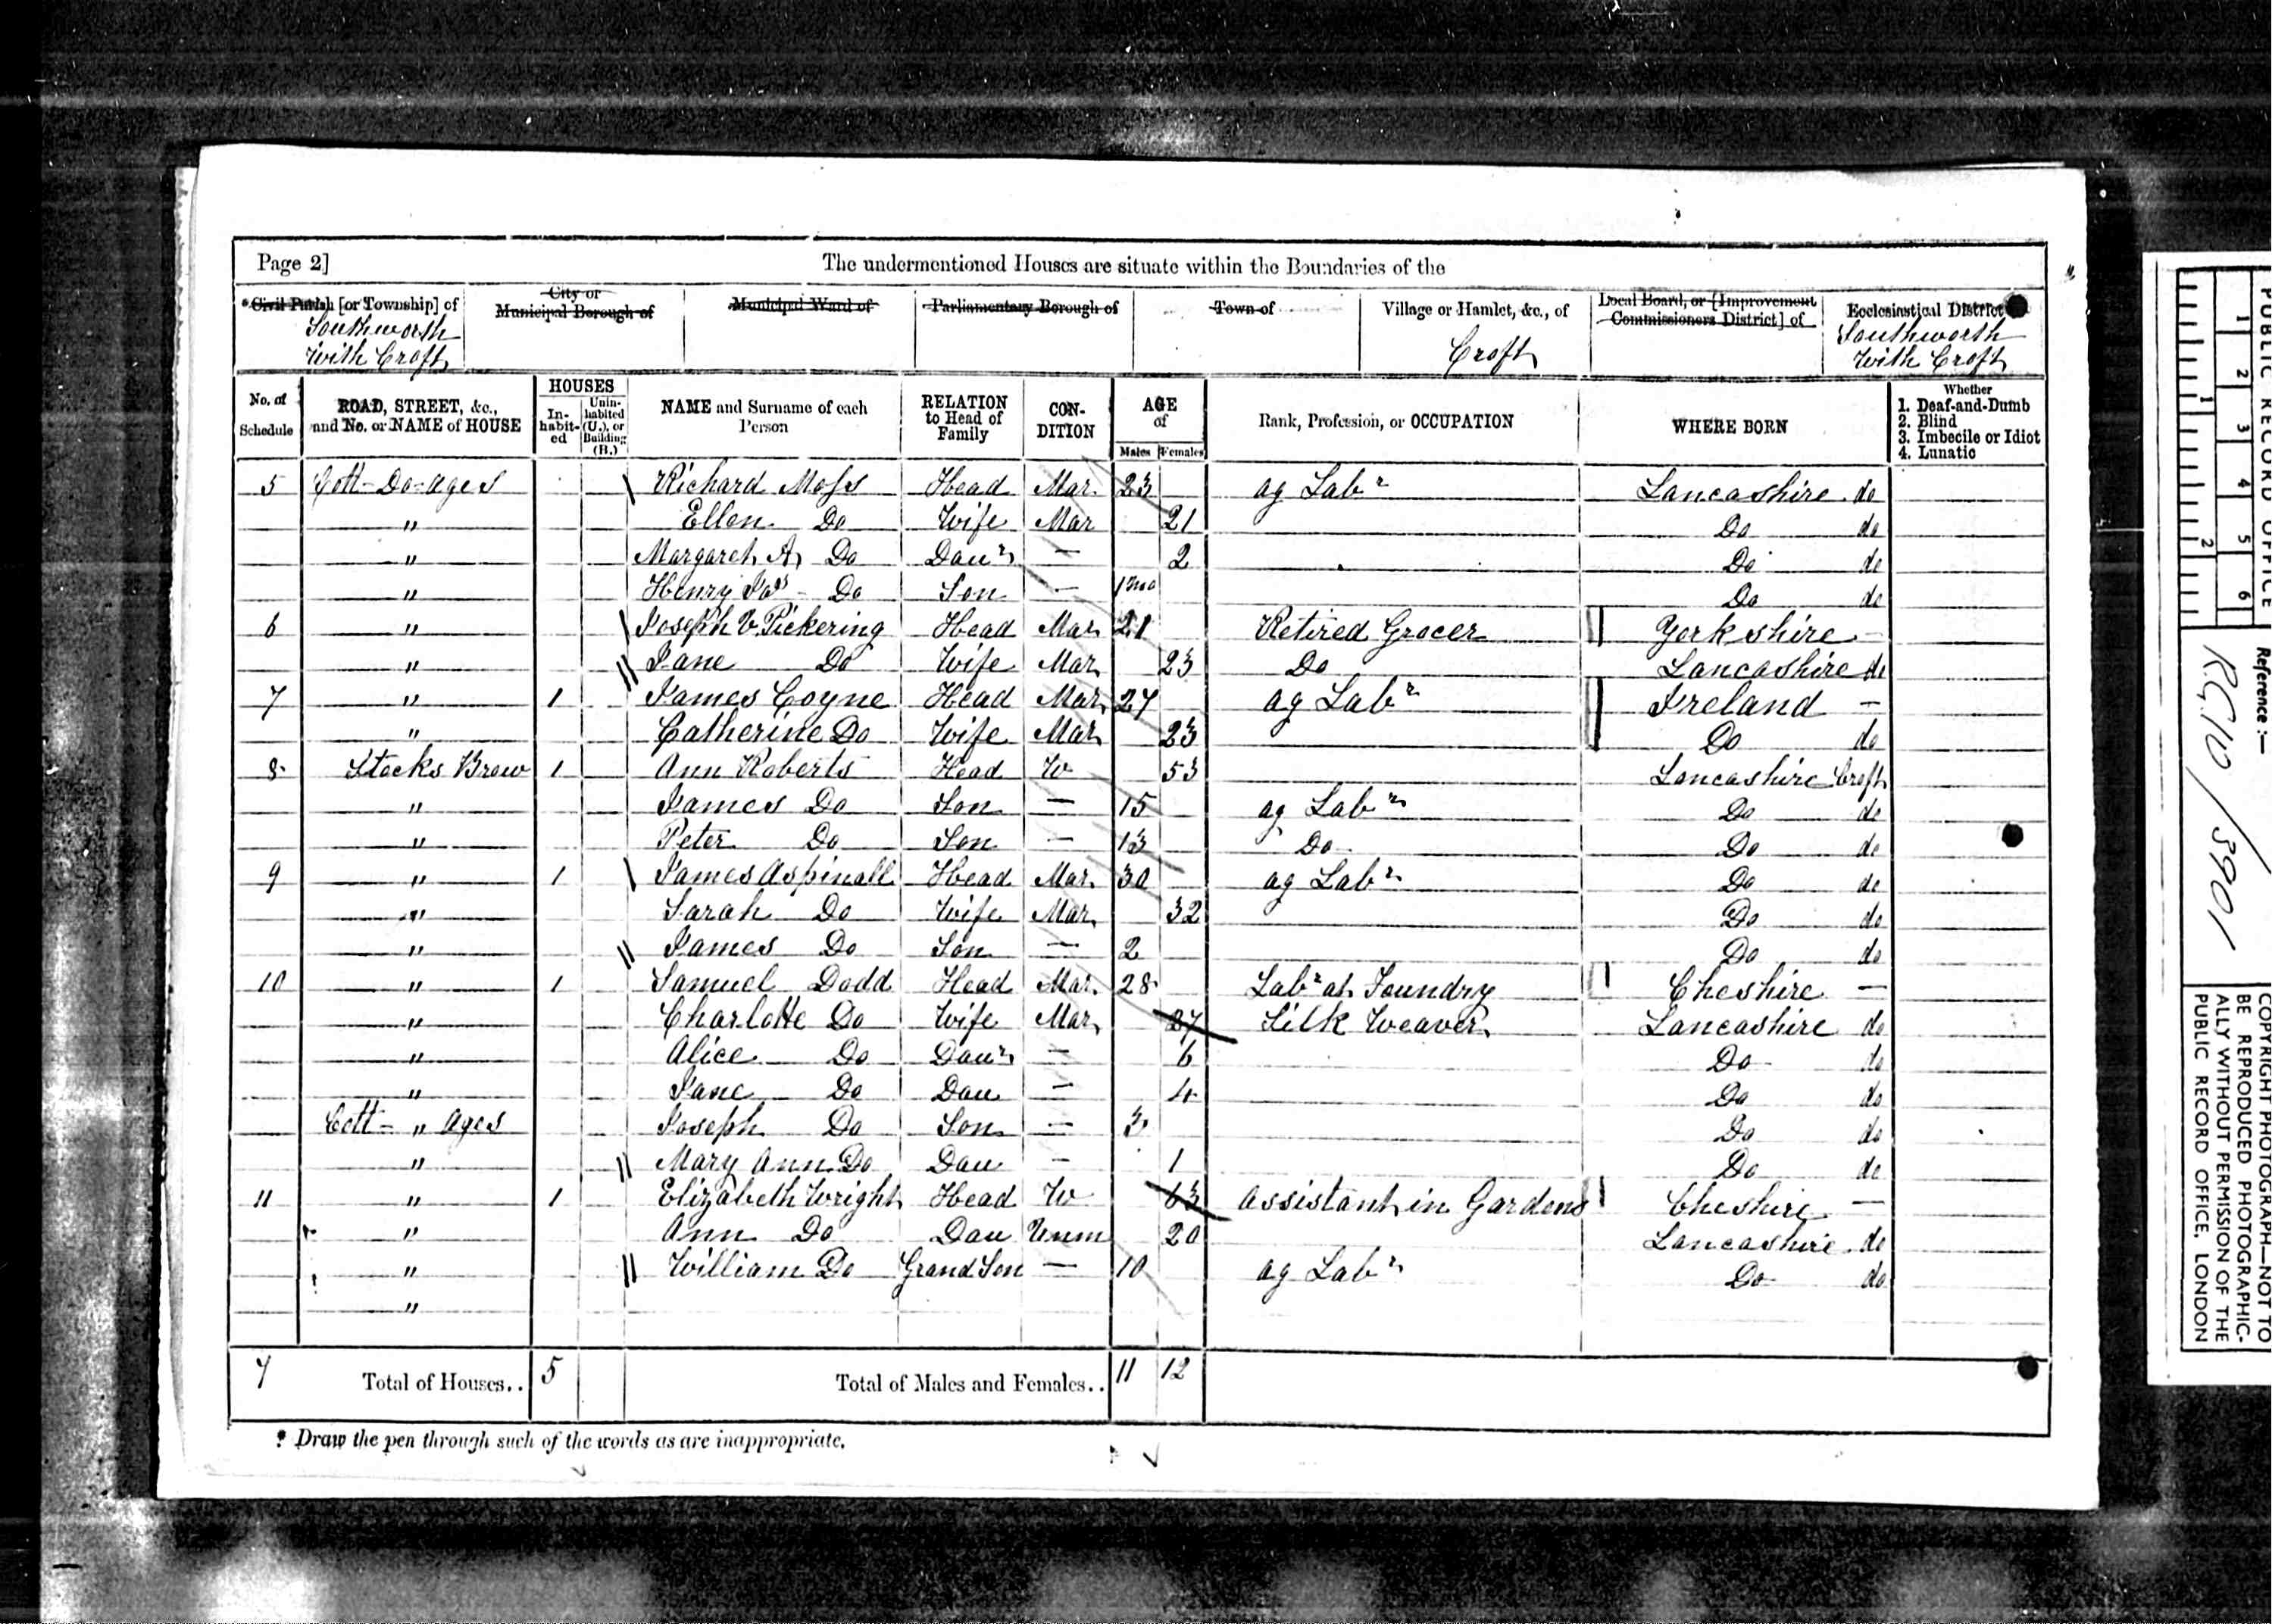 Page 2] The undermentioned Houses are situate within the Boundaries of the
* Civil Parish [or Township] of
Southworth
With Croft
City or
Municipal Borough of
Municipal Ward of
Parliamentary Borough of
Town of
Village or Hamlet, &c., of
Croft
Local Board, or [Improvement
Commissioners District] of
Ecclesiastical District
Southworth
With Croft
No. of
Schedule
ROAD, STREET, &c.,
and No. or NAME of HOUSE
HOUSES
In-
habit-
ed
Unin-
habited
(U.), or
Building
(B.)
NAME and Surname of each
Person
RELATION
to Head of
Family
CON-
DITION
AGE
of
Males Females
Rank, Profession, or OCCUPATION
WHERE BORN
Whether
1. Deaf-and-Dumb
2. Blind
3. Imbecile or Idiot
4. Lunatic
5 Cott-Do-ages Richard Moss Head Mar. 23 ag Labr Lancashire. do
" Ellen Do Wife Mar 21 Do do
" Margaret A Do Daur — 2 Do do
" Henry Do Son — 1 mo Do do
6 " Joseph V Pickering Head Mar 21 Retired Grocer Yorkshire —
" Jane Do Wife Mar 23 Do Lancashire do
7 " 1 James Coyne Head Mar 27 ag Labr Ireland —
" Catherine Do Wife Mar 23 Do do
8 Stocks Brow 1 Ann Roberts Head W 53 Lancashire Croft
" James Do Son — 15 ag Labr Do do
" Peter Do Son — 13 Do Do do
9 " 1 James Aspinall Head Mar. 30 ag Labr Do do
" Sarah Do Wife Mar 32 Do do
" James Do Son — 2 Do do
10 " 1 Samuel Dodd Head Mar. 28 Labr at Foundry Cheshire —
" Charlotte Do Wife Mar 27 Silk Weaver Lancashire do
" Alice Do Daur — 6 Do do
" Jane Do Dau — 4 Do do
Cott- " ages Joseph Do Son — 3 Do do
" Mary Ann Do Dau — 1 Do do
11 " 1 Elizabeth Wright Head W 63 Assistant in Gardens Cheshire —
" Ann Do Dau Unm 20 Lancashire. do
" William Do Grand Son — 10 ag Labr Do do
"
7 Total of Houses.. 5 Total of Males and Females.. 11 12
* Draw the pen through such of the words as are inappropriate.
PUBLIC RECORD OFFICE
1 2 3 4 5 6
1 2
Reference :—
R.G. 10 / 3901
COPYRIGHT PHOTOGRAPH—NOT TO
BE REPRODUCED PHOTOGRAPHIC-
ALLY WITHOUT PERMISSION OF THE
PUBLIC RECORD OFFICE, LONDON